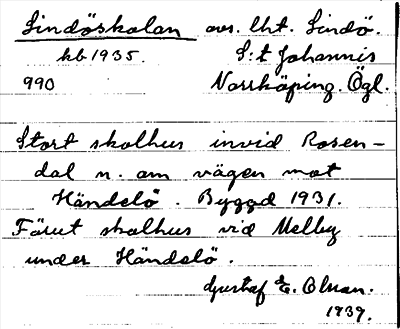 Lindöskolan avs. lht. Lindö.
kb 1935. S:t Johannis
990 Norrköping. Ögl.
Stort skolhus invid Rosen-
dal n. om vägen mot
Händelö. Byggd 1931.
Förut skolhus vid Melby
under Händelö.
Gustaf E. Olsson.
1939.